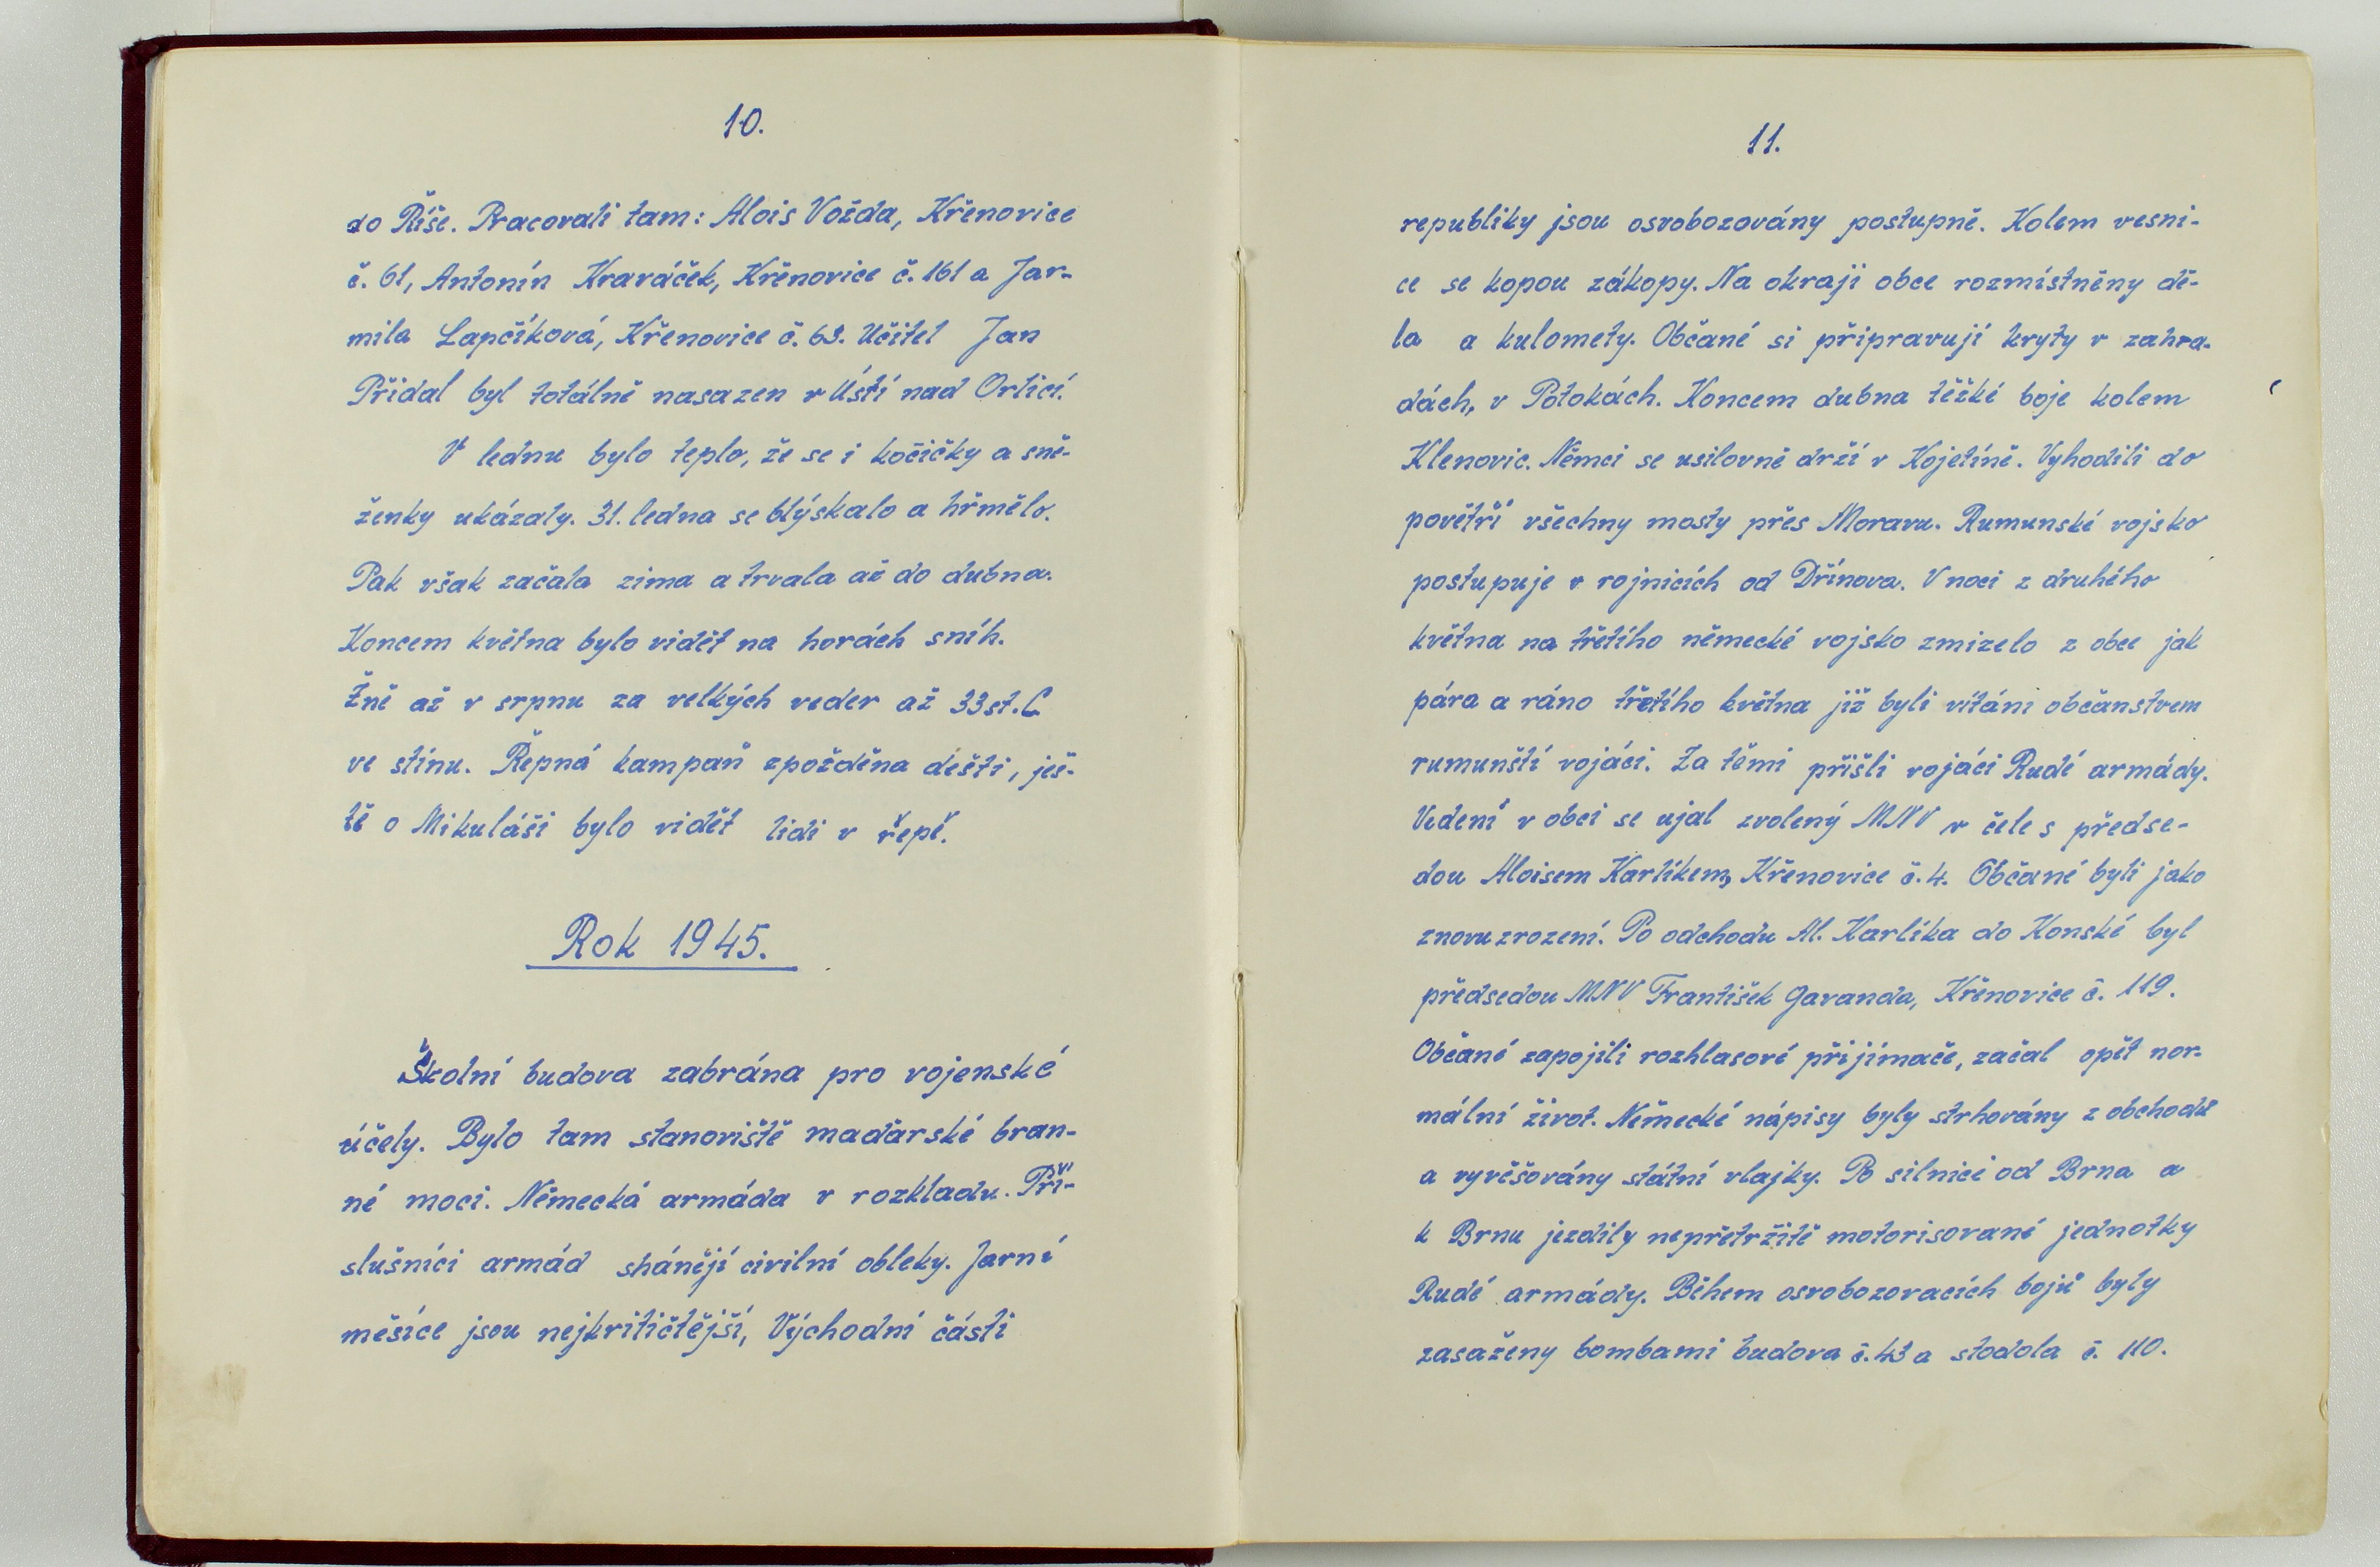 10.
do Říše. Pracovali tam: Alois Vožda, Křenovice
č. 61, Antonín Kraváček, Křenovice č. 161 a Jar-
mila Lapčíková, Křenovice č. 63. Učitel Jan
Přidal byl totálně nasazen v Ústí nad Orlicí.
V lednu bylo teplo, že se i kočičky a sně-
ženky ukázaly. 31. ledna se blýskalo a hřmělo.
Pak však začala zima a trvala až do dubna.
Koncem května bylo vidět na horách sníh.
Žně až v srpnu za velkých veder až 33 st. C
ve stínu. Řepná kampaň zpožděna dešti, ješ-
tě o Mikuláši bylo vidět lidi v řepě.
Rok 1945.
Školní budova zabrána pro vojenské
účely. Bylo tam stanoviště maďarské bran-
né moci. Německá armáda v rozkladu. Pří-
slušníci armád shánějí civilní obleky. Jarní
měsíce jsou nejkritičtější, Východní části
11.
republiky jsou osvobozovány postupně. Kolem vesni-
ce se kopou zákopy. Na okraji obce rozmístněny dě-
la a kulomety. Občané si připravují kryty v zahra-
dách, v Potokách. Koncem dubna těžké boje kolem
Klenovic. Němci se usilovně drží v Kojetíně. Vyhodili do
povětří všechny mosty přes Moravu. Rumunské vojsko
postupuje v rojnicích od Dřínova. V noci z druhého
května na třetího německé vojsko zmizelo z obce jak
pára a ráno třetího května již byli vítáni občanstvem
rumunští vojáci. Za těmi přišli vojáci Rudé armády.
Vedení v obci se ujal zvolený MNV v čele s předse-
dou Aloisem Karlíkem, Křenovice č. 4. Občané byli jako
znovuzrození. Po odchodu Al. Karlíka do Konské byl
předsedou MNV František Gavanda, Křenovice č. 119.
Občané zapojili rozhlasové přijímače, začal opět nor-
mální život. Německé nápisy byly strhovány z obchodů
a vyvěšovány státní vlajky. Po silnici od Brna a
k Brnu jezdily nepřetržitě motorisované jednotky
Rudé armády. Během osvobozovacích bojů byly
zasaženy bombami budova č. 43 a stodola č. 110.